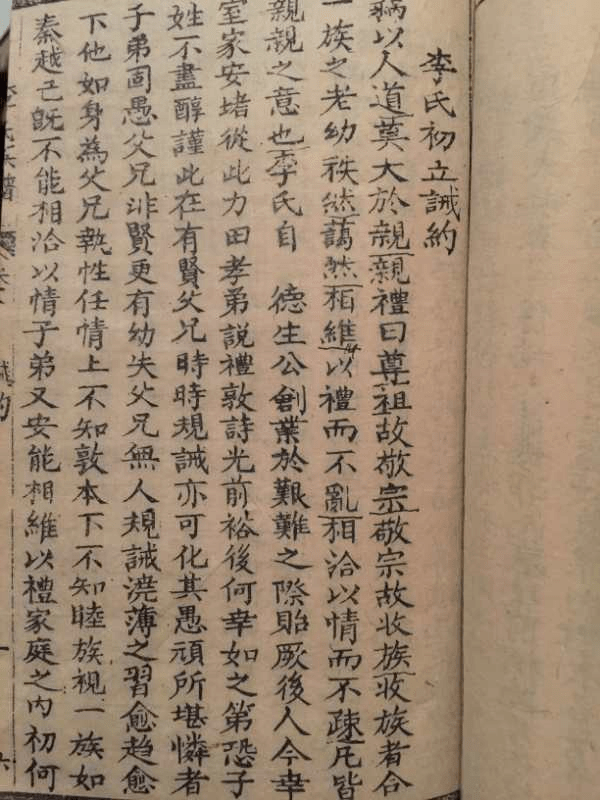 李氏初立誡約
竊以人道莫大於親親禮曰尊祖故敬宗敬宗故收族收族者合
一族之老幼秩然藹然相維以禮而不亂相洽以情而不疎凡皆
親親之意也李氏自 德生公創業於艱難之際貽厥後人今幸
室家安堵從此力田孝弟說禮敦詩光前裕後何幸如之第恐子
姓不盡醇謹此在有賢父兄時時規誡亦可化其愚頑所堪憐者
子弟固愚父兄非賢更有幼失父兄無人規誡澆薄之習愈趨愈
下他如身為父兄執性任情上不知敦本下不知睦族視一族如
秦越己既不能相洽以情子弟又安能相維以禮家庭之内初何
誡約